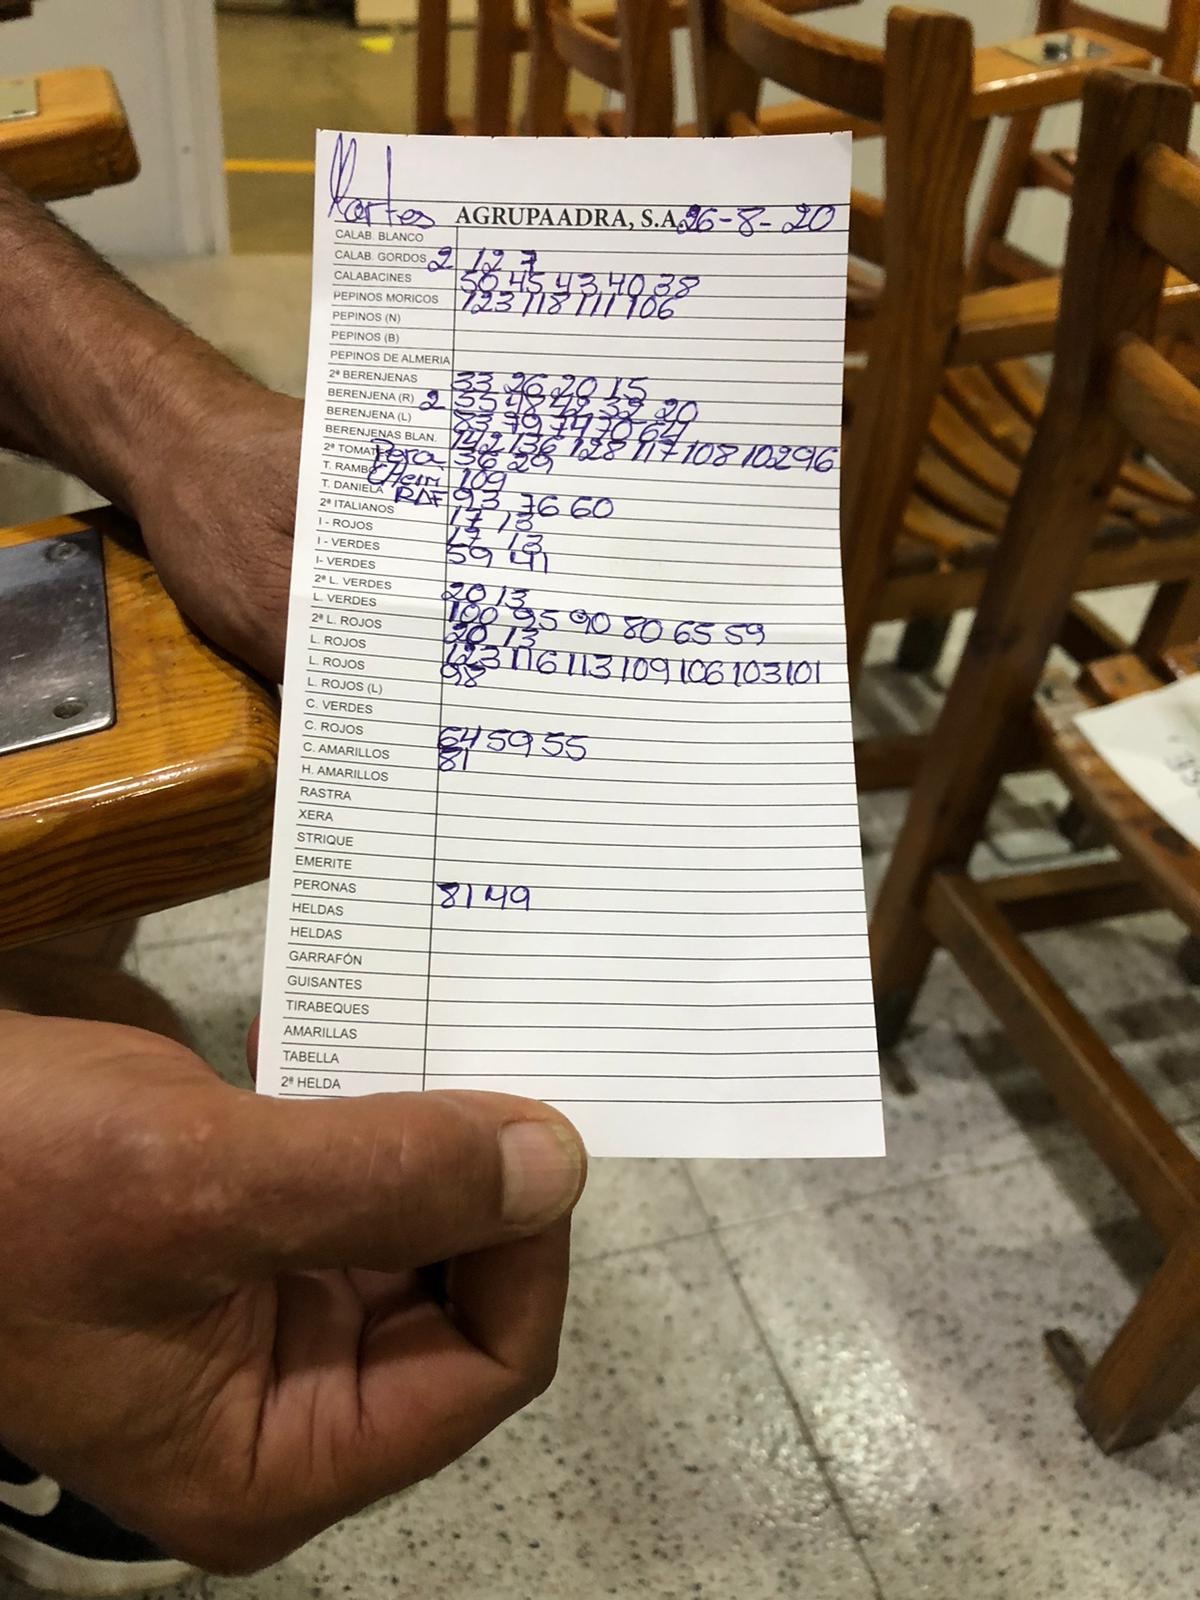 Martes AGRUPAADRA, S.A. 26-8-20
CALAB. BLANCO
CALAB. GORDOS 2 12 7
CALABACINES 50 45 43 40 38
PEPINOS MORICOS 123 118 111 106
PEPINOS (N)
PEPINOS (B)
PEPINOS DE ALMERIA
2ª BERENJENAS 33 26 20 15
BERENJENA (R) 2 55 48 42 32 20
BERENJENA (L) 83 79 74 70 64
BERENJENAS BLAN. 142 136 128 117 108 102 96
2ª TOMAT Pera 36 29
T. RAMBO 109
T. DANIELA RAF 93 76 60
2ª ITALIANOS 17 13
I - ROJOS 17 13
I - VERDES 59 41
I- VERDES
2ª L. VERDES 20 13
L. VERDES 100 95 90 80 65 59
2ª L. ROJOS 20 13
L. ROJOS 123 116 113 109 106 103 101
L. ROJOS 98
L. ROJOS (L)
C. VERDES
C. ROJOS 64 59 55
C. AMARILLOS 81
H. AMARILLOS
RASTRA
XERA
STRIQUE
EMERITE
PERONAS 81 49
HELDAS
HELDAS
GARRAFÓN
GUISANTES
TIRABEQUES
AMARILLAS
TABELLA
2ª HELDA